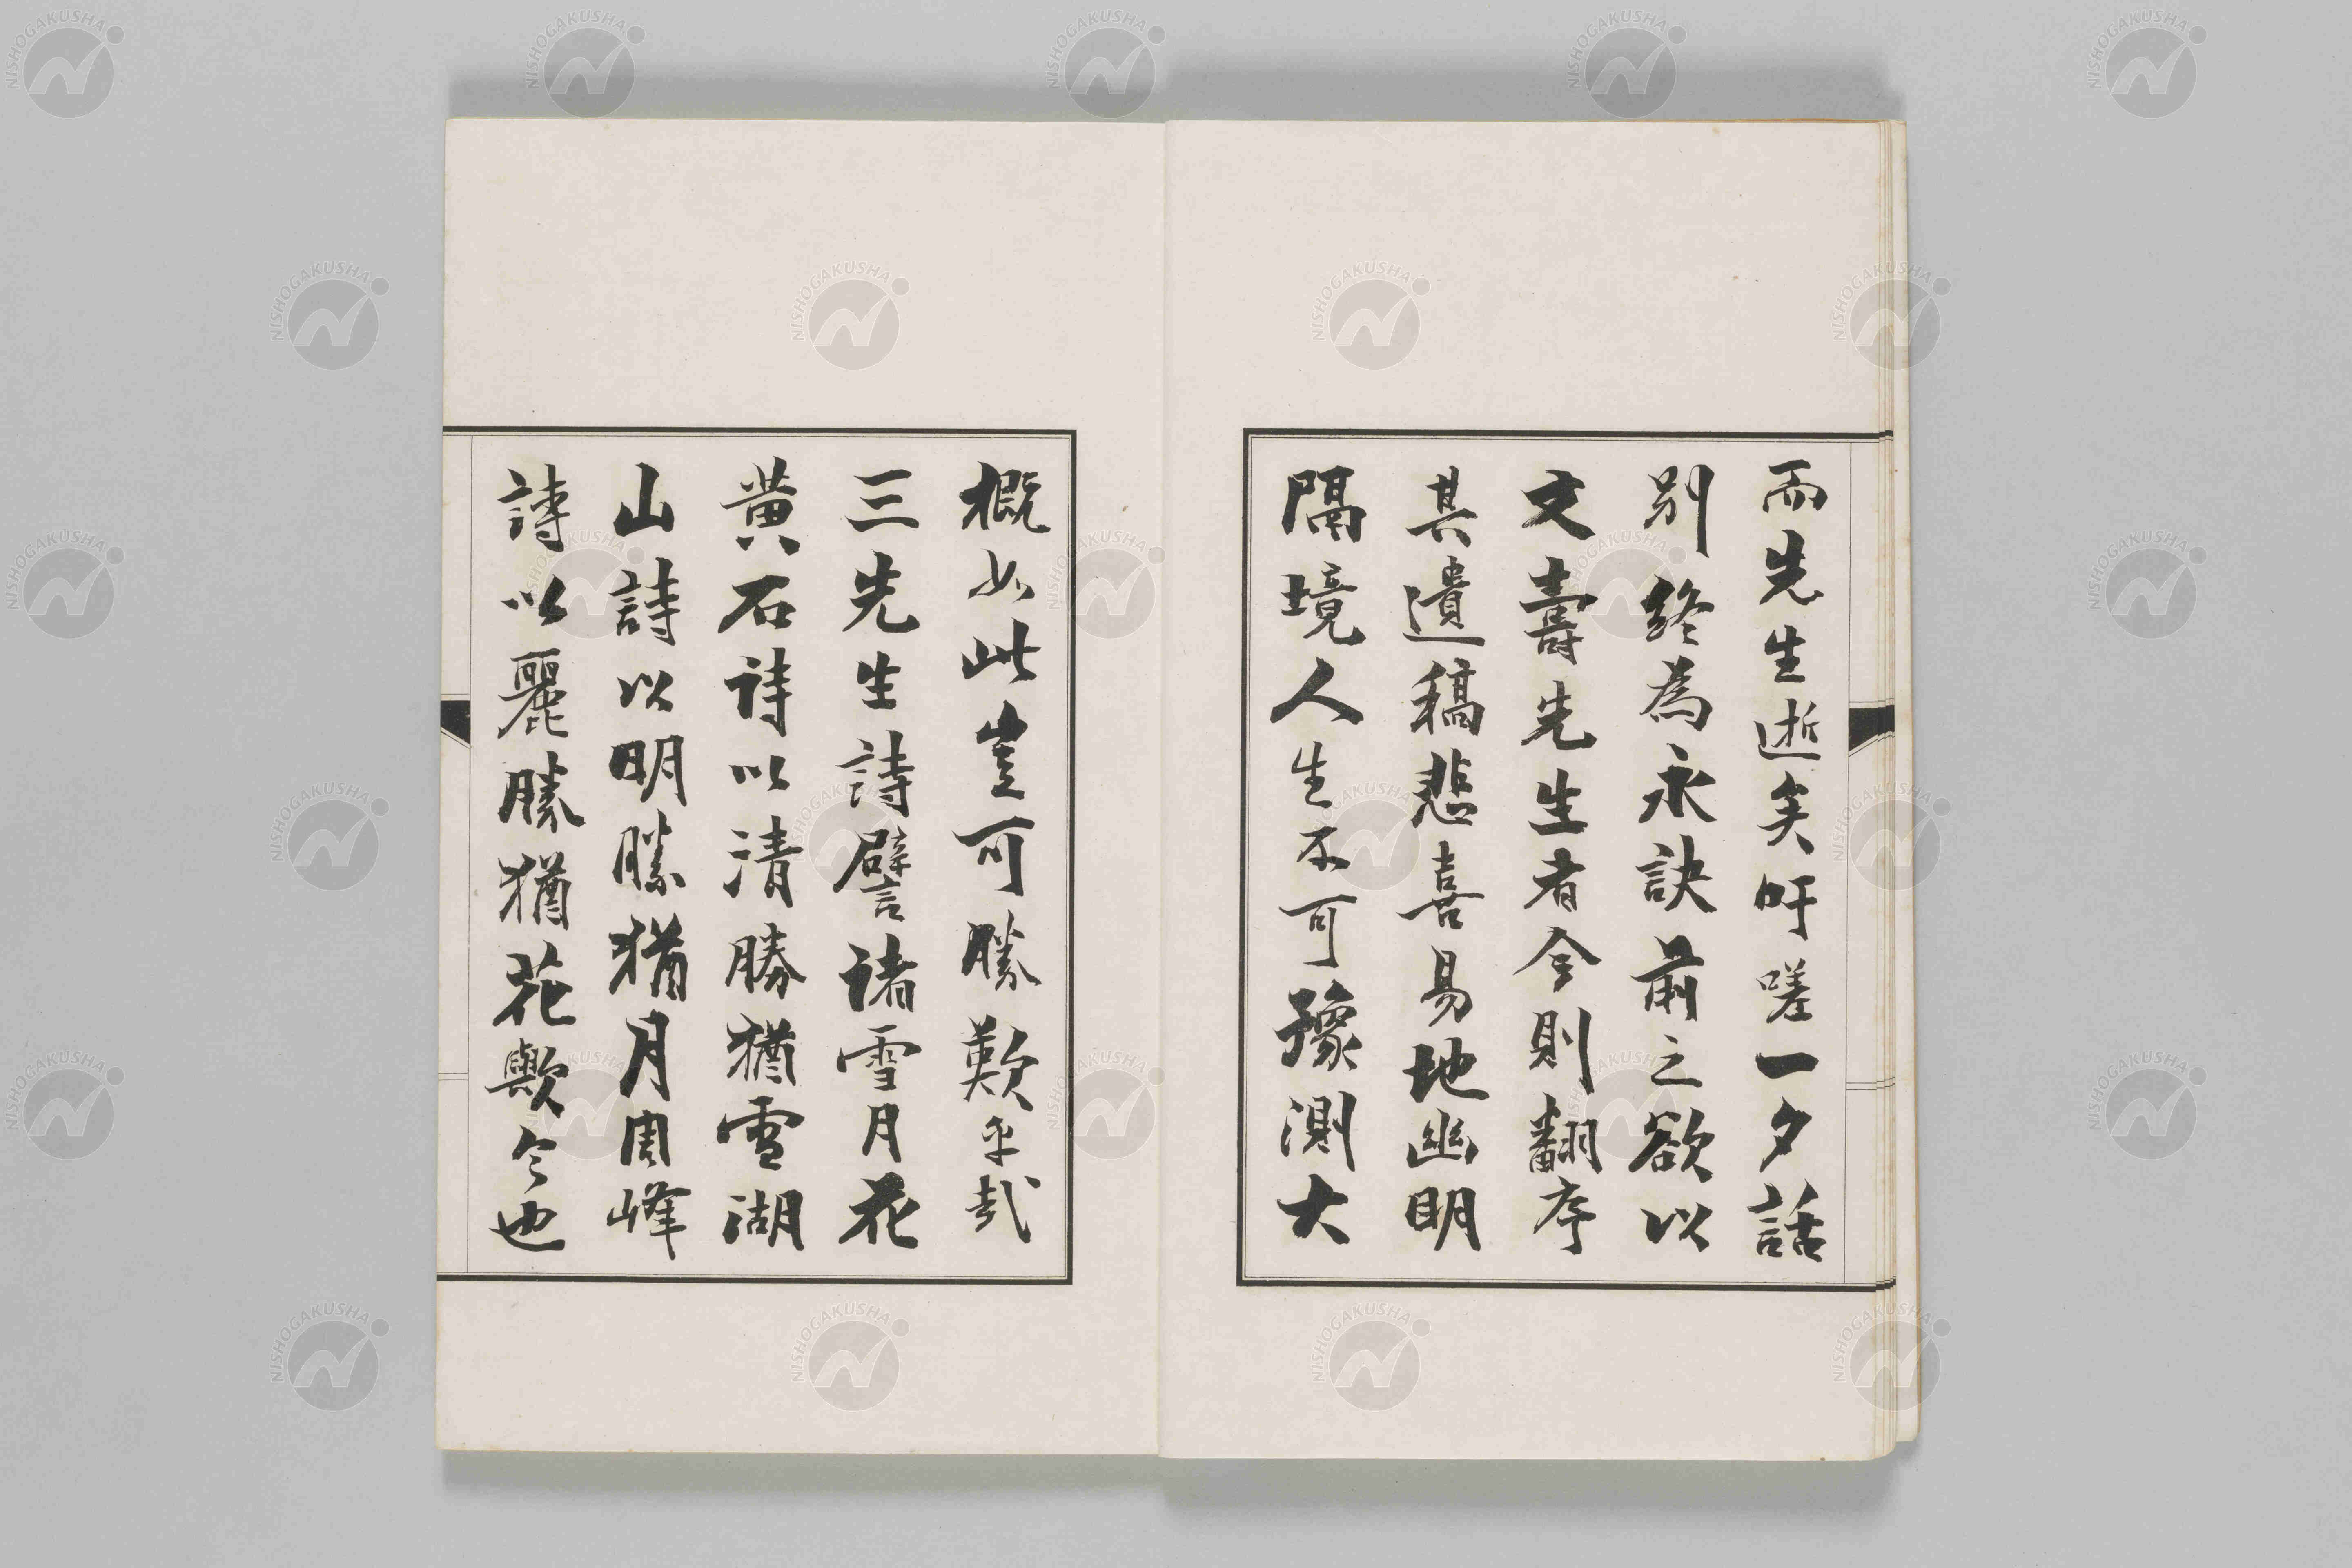 而先生逝矣吁嗟一夕話
別終為永訣前之欲以
文壽先生者今則翻序
其遺稿悲喜易地幽明
隔境人生不可豫測大
概如此豈可勝歎乎哉
三先生詩譬諸雪月花
黄石詩以清勝猶雪湖
山詩以明勝猶月周峰
詩以麗勝猶花歟今也
NISHOGAKUSHA